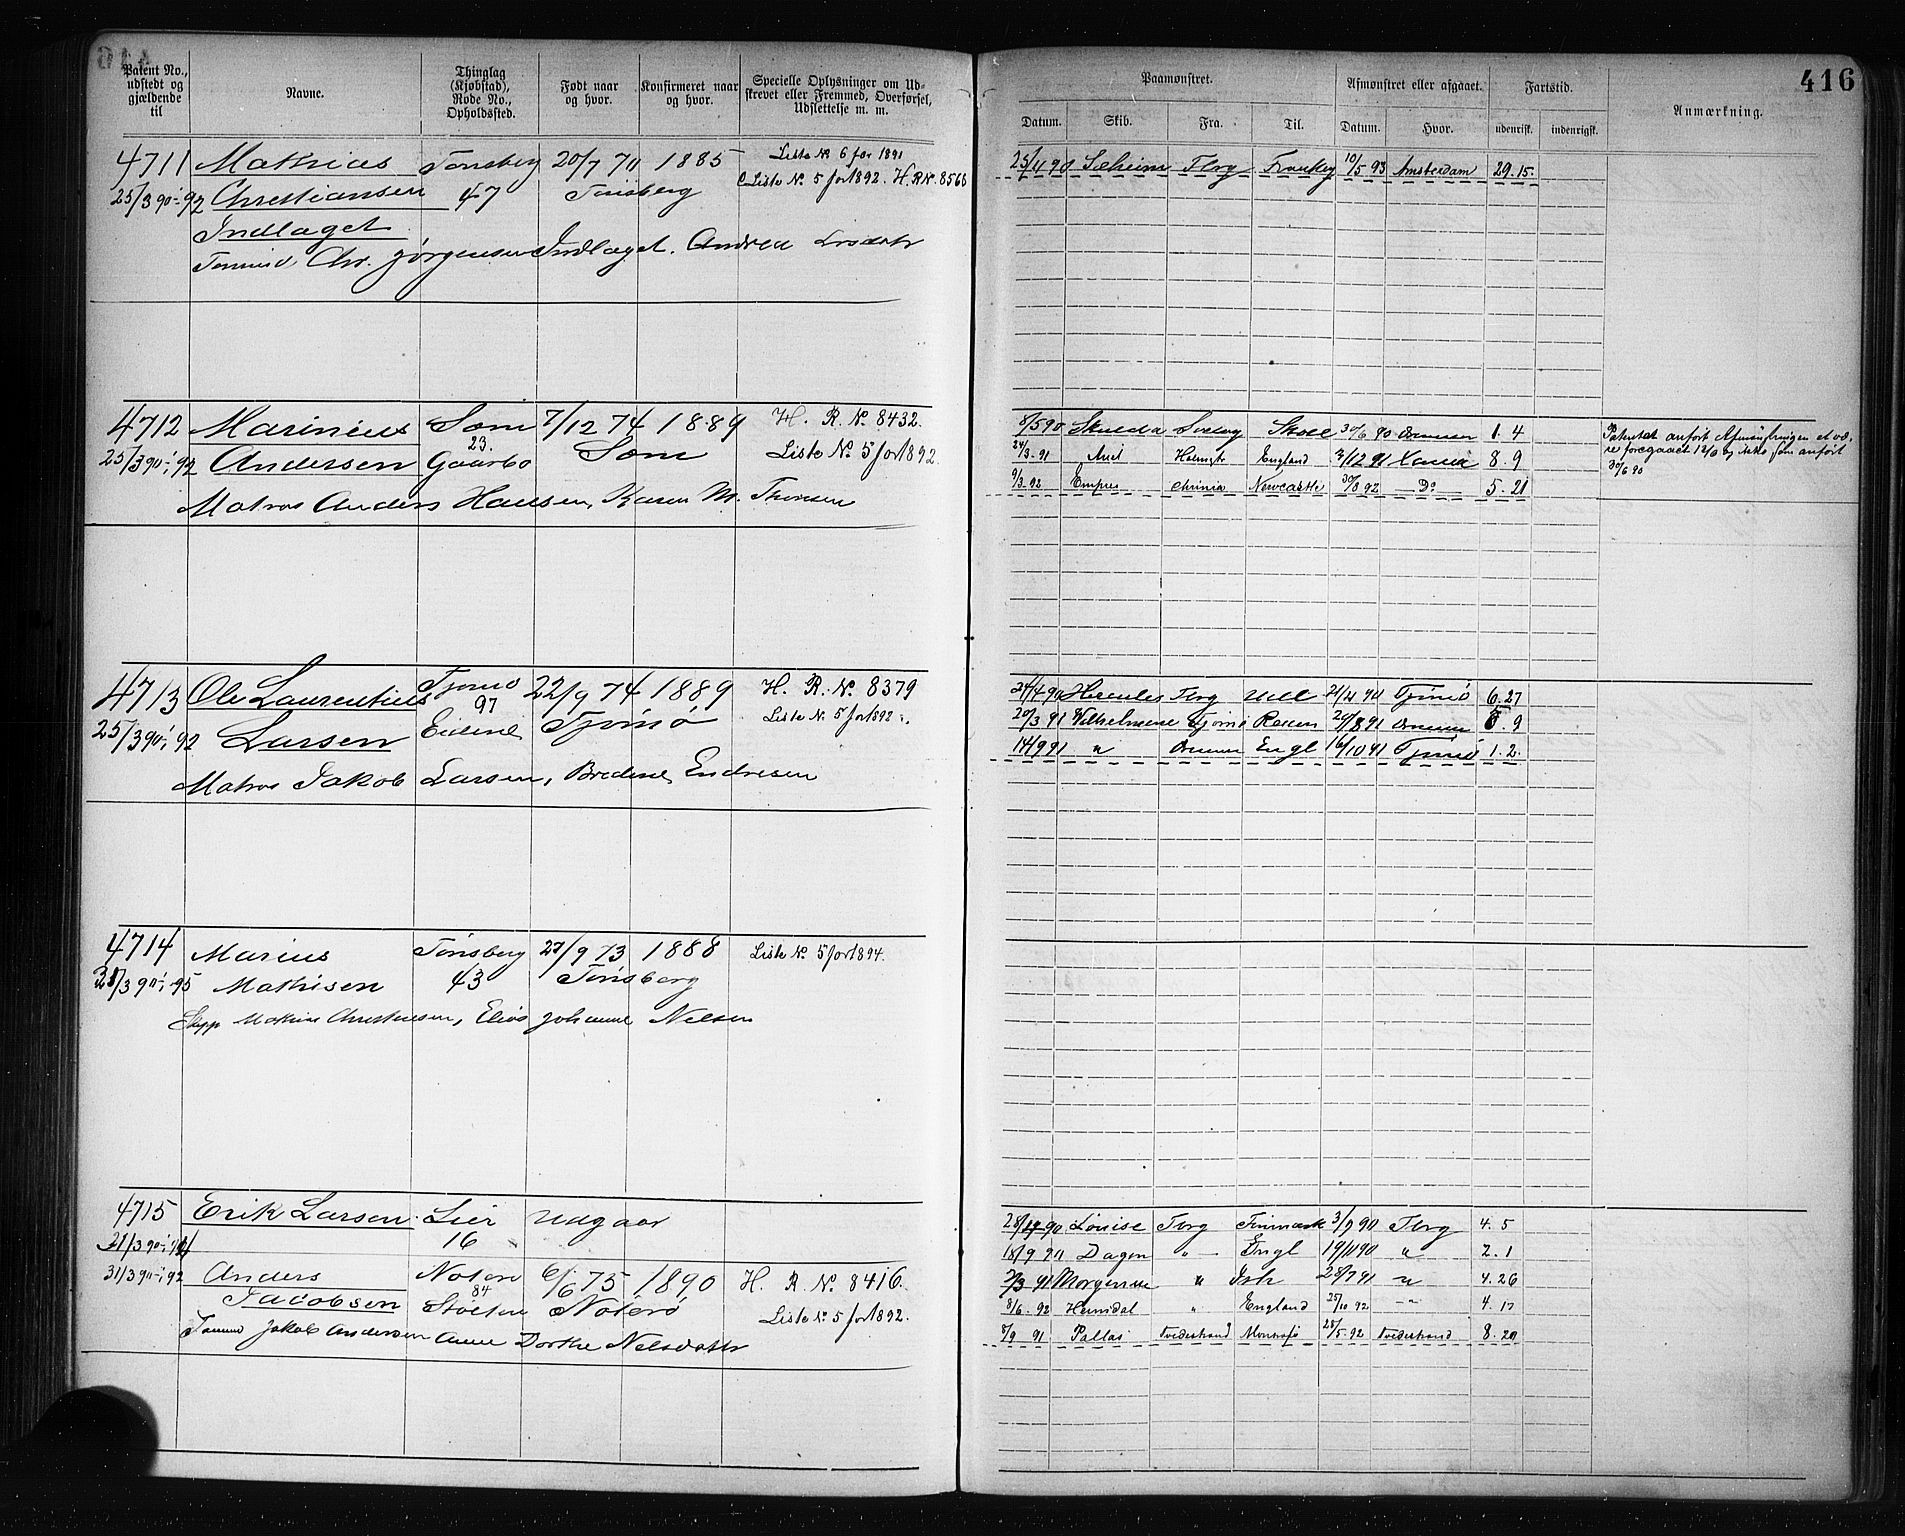 416
Patent No., udstedt og gjældende til
Navne.
Thinglag (Kjøbstad), Rode No., Opholdssted.
Født naar og hvor.
Konfirmeret naar og hvor.
Specielle Oplysninger om Udskrevet eller Fremmed, Overførsel, Udslettelse m. m.
Paamønstret.
Afmønstret eller afgaaet.
Fartstid.
Anmærkning.
Datum. Skib. Fra. Til. Datum. Hvor. udenrigs. indenrigsk.
4711 Mathias Tønsberg 20/7 70 1885 Liste No 6 for 1891
25/3 90 - 92 Christiansen 47 Tønsberg Liste No 5 for 1892. H. R No. 8568
Indlaget
Tømmd Chr. Jørgensen Indlaget. Andrea
25/4 90 Sæheim Tbrg 10/5 93 Amsterdam 29.15
4712 Marinius Sem 7/12 74 1889 H. R. No 8432.
25/3 90 - 92 Andersen 23. Gaarbo Sem Liste No 5 for 1892.
Matros Anders Hansen, Karen M. Thoresen
8/5 90 Skulda 30/6 90 1. 4
24/3. 91 England 3/12 91 8. 9
9/3. 92 Empres Newcastle 30/8 92 Do 5. 21
30/6 90
4713 Ole Laurentius Tjømø 22/9 74 1889 H. R. No. 8379
25/3 90 - 92 Larsen 97 Tjømø Liste No. 5 for 1892.
Matros Jakob Larsen, Bredine Endresen
24/4 90 Hercules Tbrg 21/11 90 Tjømø 6. 27
20/3 91 Vilhelmine Tjømø 29/8 91 5. 9
14/9 91 " Engl 16/10 91 Tjømø 1. 2.
4714 Marius Tønsberg 27/9 73 1888 Liste No. 5 for 1894.
31/3 90 - 95 Mathisen 43 Tønsberg
Skpp Mathias Christensen, Johanne Nelsen
4715 Erik Larsen Lier Udgaar
21/3 90 16
31/3 90 - 92 Anders Nøterø 6/6 75 1890 H. R. No. 8416.
Jacobsen 84 Nøterø Liste No 5 for 1892.
Tømmd Jakob Andersen Anne Dorthe Nelsdatter
28/4 90 Louise Tbrg Finmark 3/9 90 Tbrg 4. 5
18/9 90 Dagen " Engl 19/11 90 " 2. 1
2/3 91 Morgenen " 28/7 91 " 4. 26
8/6. 92 Heimdal " England 25/10 92 " 4. 17
8/9 91 Pallas Tvedestrand 28/5. 92 Tvedestrand 8. 20